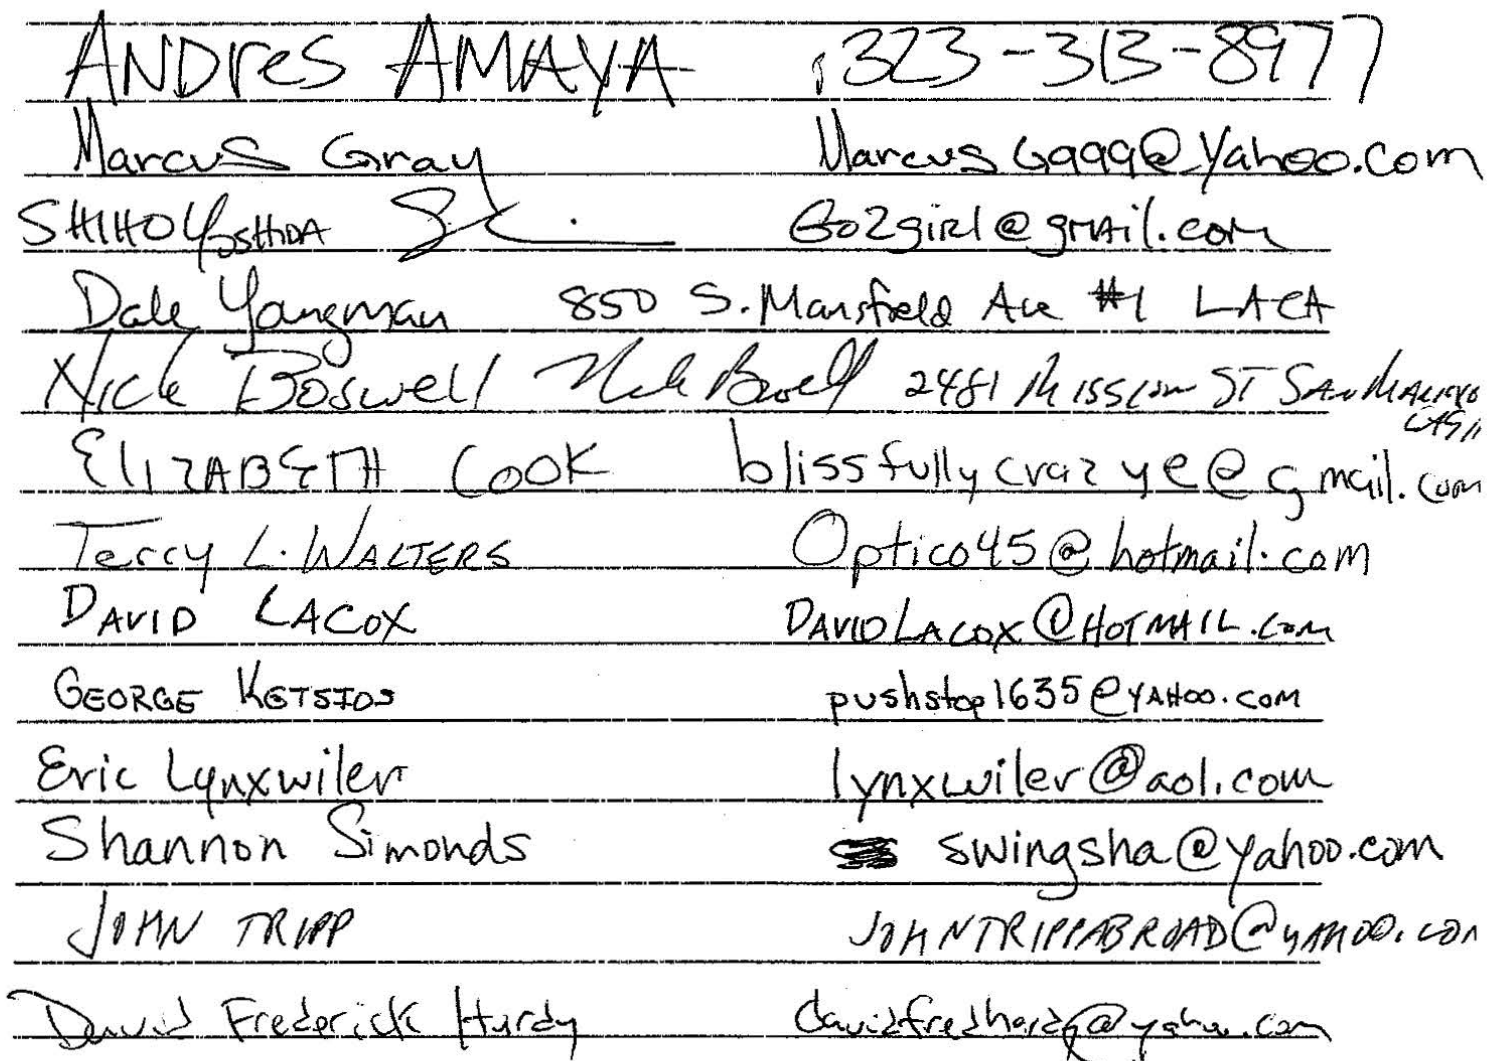 ANDres AMAYA 323-313-8977
Marcus Gray MarcusG999@Yahoo.com
SHIHO YOSHIDA Go2girl@gmail.com
Dale Youngman 850 S. Mansfield Ave #1 LA CA
Nick Boswell Nick Boswell 2481 Mission ST SAN MARINO
ELIZABETH COOK blissfullycrazye@gmail.com
Terry L. WALTERS Optico45@hotmail.com
DAVID LACOX DAVIDLACOX@HOTMAIL.COM
GEORGE KETSIOS pushstop1635@YAHOO.COM
Eric Lynxwiler lynxwiler@aol.com
Shannon Simonds swingsha@yahoo.com
JOHN TRIPP JOHNTRIPPABROAD@YAHOO.COM
David Frederick Hurdy